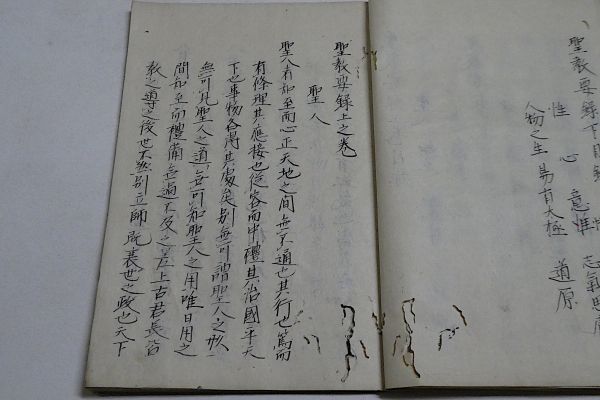 聖教要録下目録
性 心 意 性 志氣思慮
人物之生 易有太極 道原
聖教要録上之巻
聖人
聖人者知至而心正天地之間無不通也其行也篤而
有條理其應接也從容而中禮其治國平天
下也事物各得其處矣別無可謂聖人之形
無可見聖人之道無可知聖人之用唯日用之
間知至而禮備無過不及之差上古君長皆
教之導之後世不然別立師既衰世之政也天下